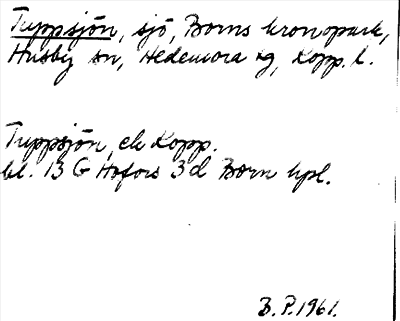 Tuppsjön, sjö, Borns kronopark,
Husby sn, Hedemora tg, Kopp. l.
Tuppsjön, ek Kopp.
bl. 13 G Hofors 3d Born hpl.
B.P. 1961.